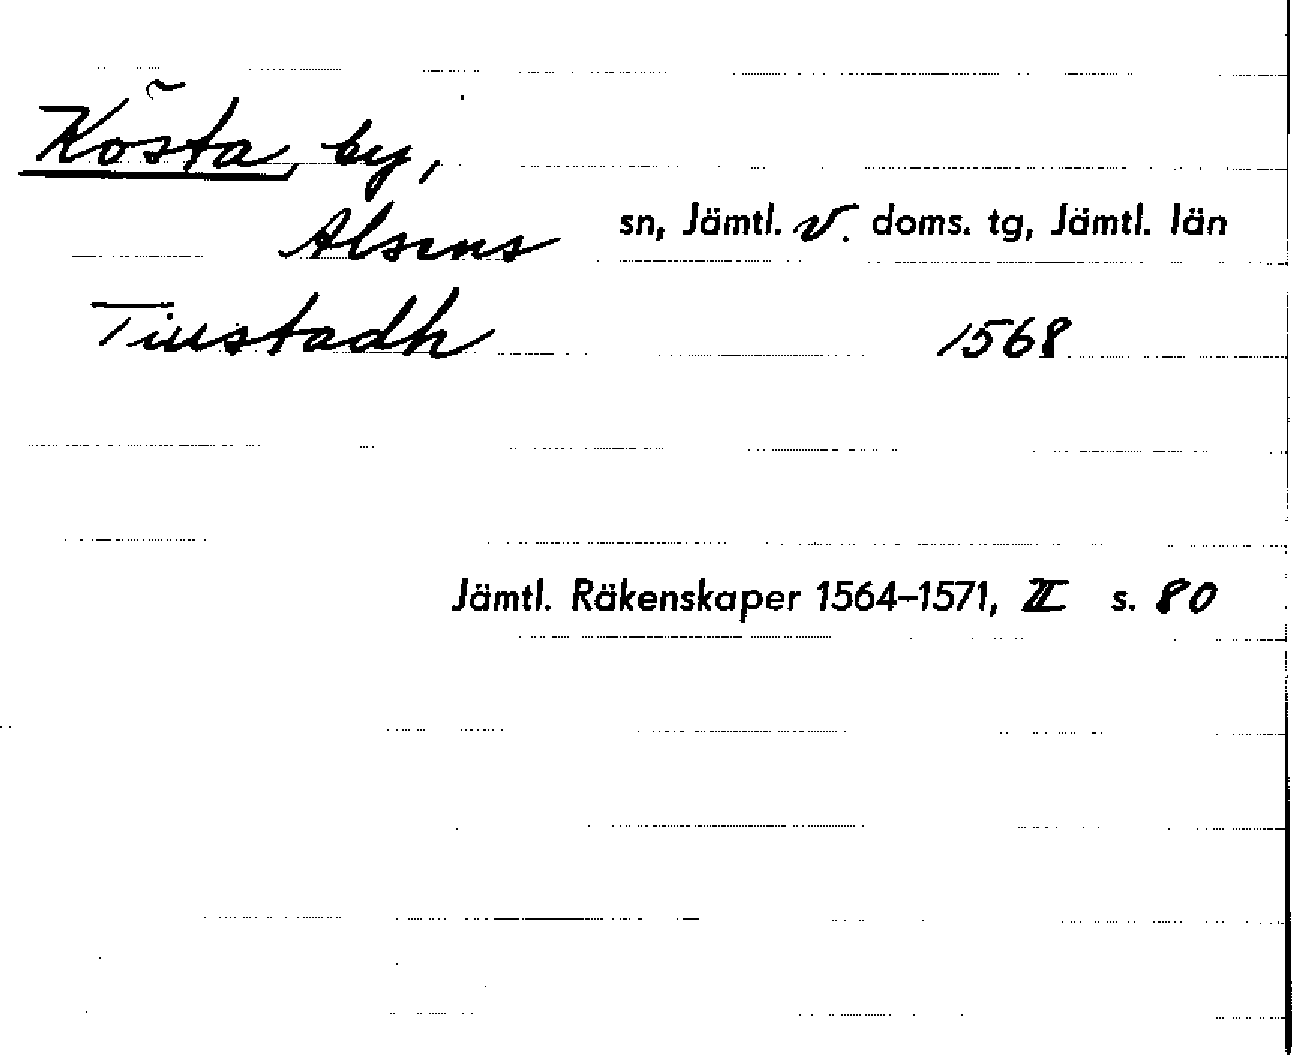 Kösta, by,
Alsens sn, Jämtl. v. doms. tg, Jämtl. län
Tiustadh 1568
Jämtl. Räkenskaper 1564–1571, II s. 80